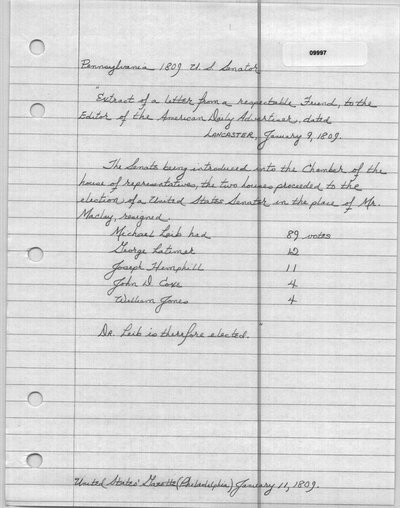 09997
Pennsylvania 1809 U. S. Senator
"Extract of a letter from a respectable Friend, to the
Editor of the American Daily Advertiser, dated
LANCASTER, January 9, 1809.
The Senate being introduced into the Chamber of the
house of representatives, the two houses proceeded to the
election of a United States Senator in the place of Mr.
Maclay, resigned.
Michael Leib had 89 votes
George Latimer 12
Joseph Hemphill 11
John D. Coxe 4
William Jones 4
Dr. Leib is therefore elected."
United States' Gazette (Philadelphia) January 11, 1809.